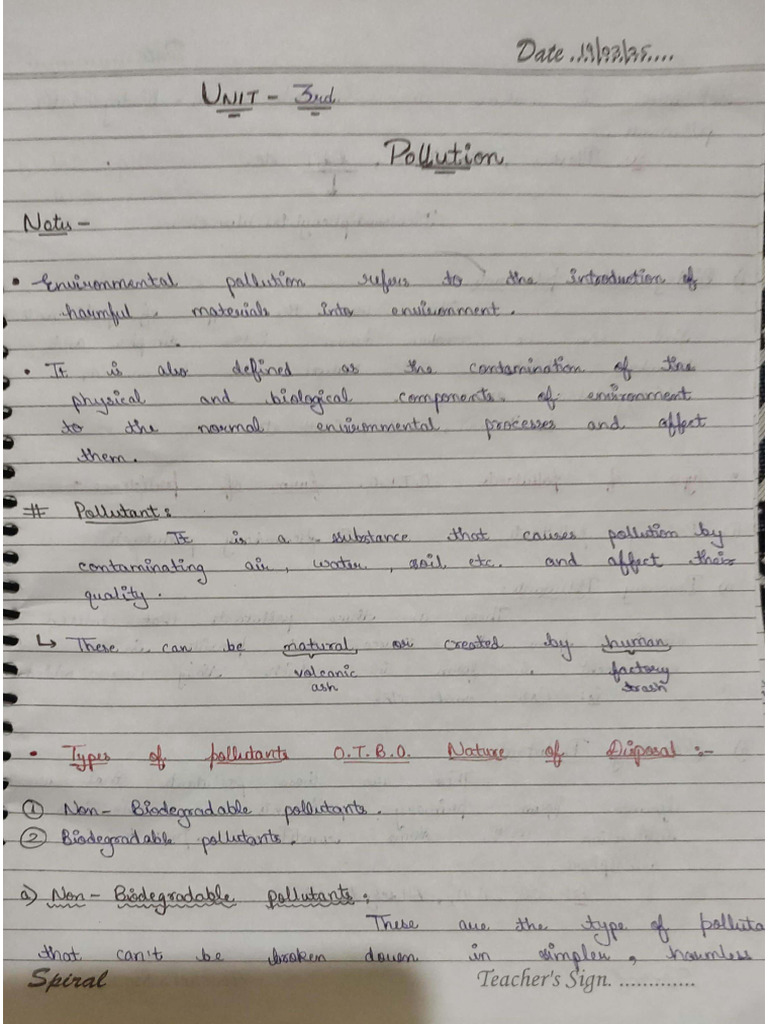 Date .19/03/25....
UNIT - 3rd
Pollution
Notes -
• Environmental pollution refers to the introduction of
harmful materials into environment.
• It is also defined as the contamination of the
physical and biological components of environment
to the normal environmental processes and affect
them.
# Pollutant:
It is a substance that causes pollution by
contaminating air, water, soil etc. and affect their
quality.
↳ These can be natural or created by human
volcanic factory
ash trash
• Types of pollutants O.T.B.O. Nature of Disposal :-
① Non-Biodegradable pollutants.
② Biodegradable pollutants.
a) Non-Biodegradable pollutants:
These are the type of polluta
that can't be broken down in simpler, harmless
Spiral Teacher's Sign. .............